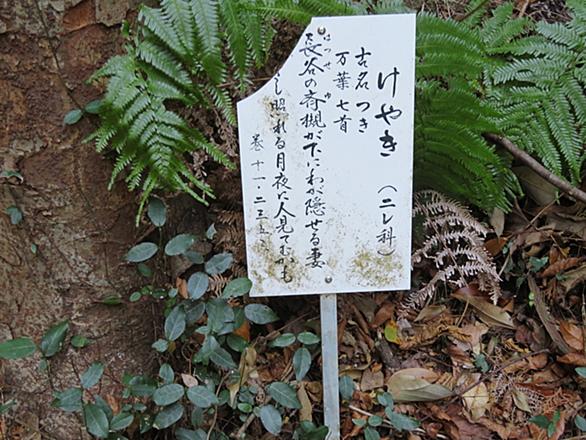 けやき (ニレ科)
古名 つき
万葉 七首
長谷の斎槻が下にわが隠せる妻
し照れる月夜に人見てむかも
巻十一・二三五